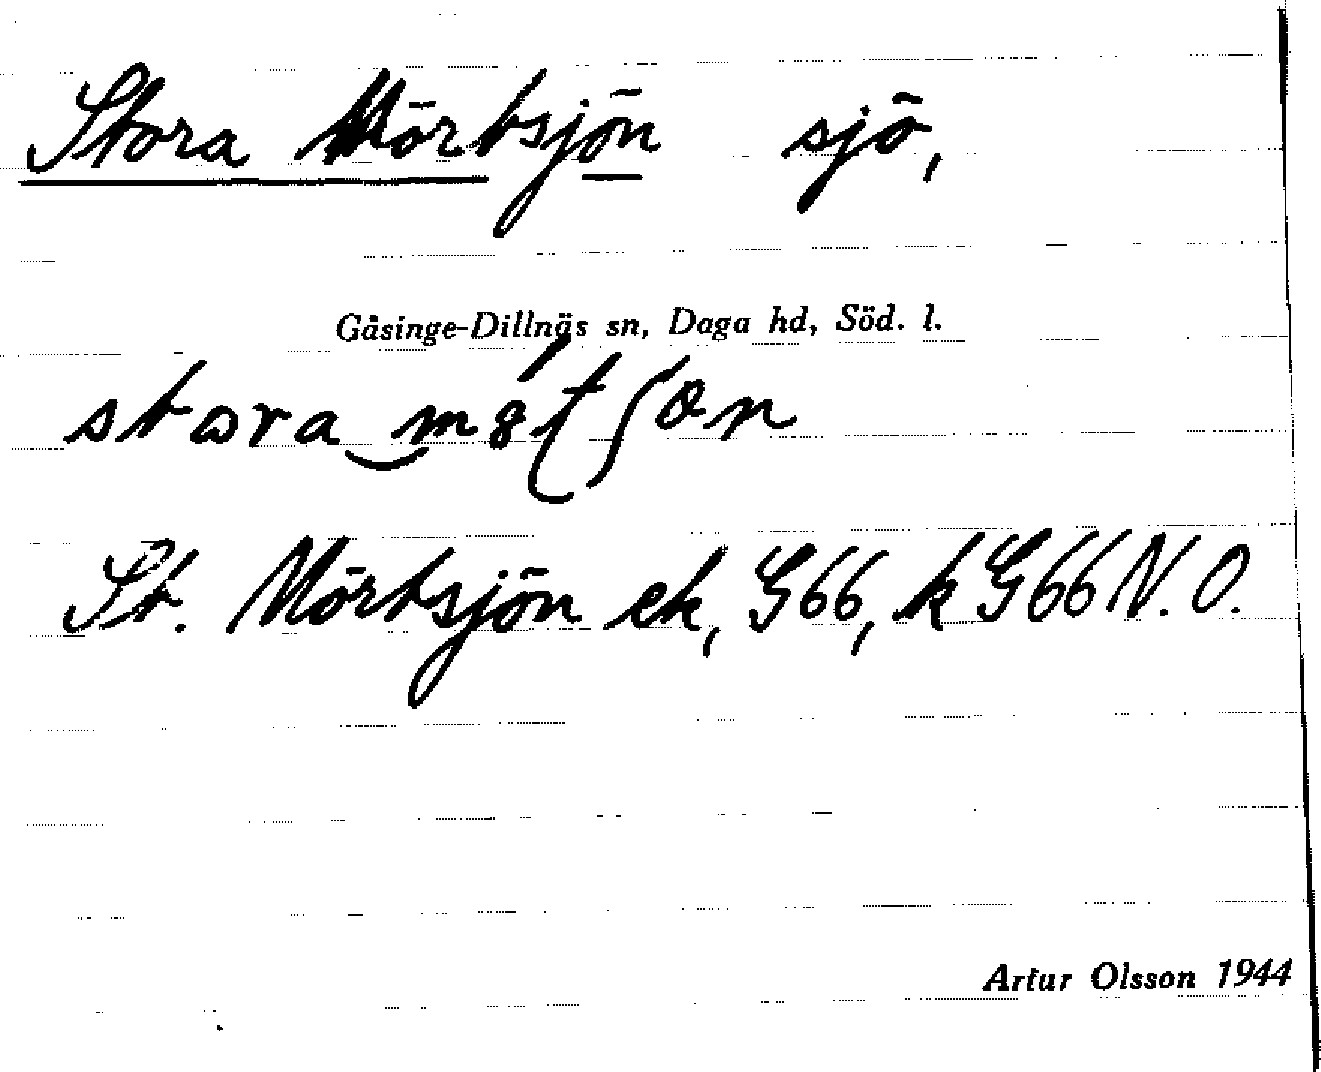 Stora Mörtsjön sjö,
Gåsinge-Dillnäs sn, Daga hd, Söd. l.
stora
St. Mörtsjön ek, G66, k G66 N.O.
Artur Olsson 1944